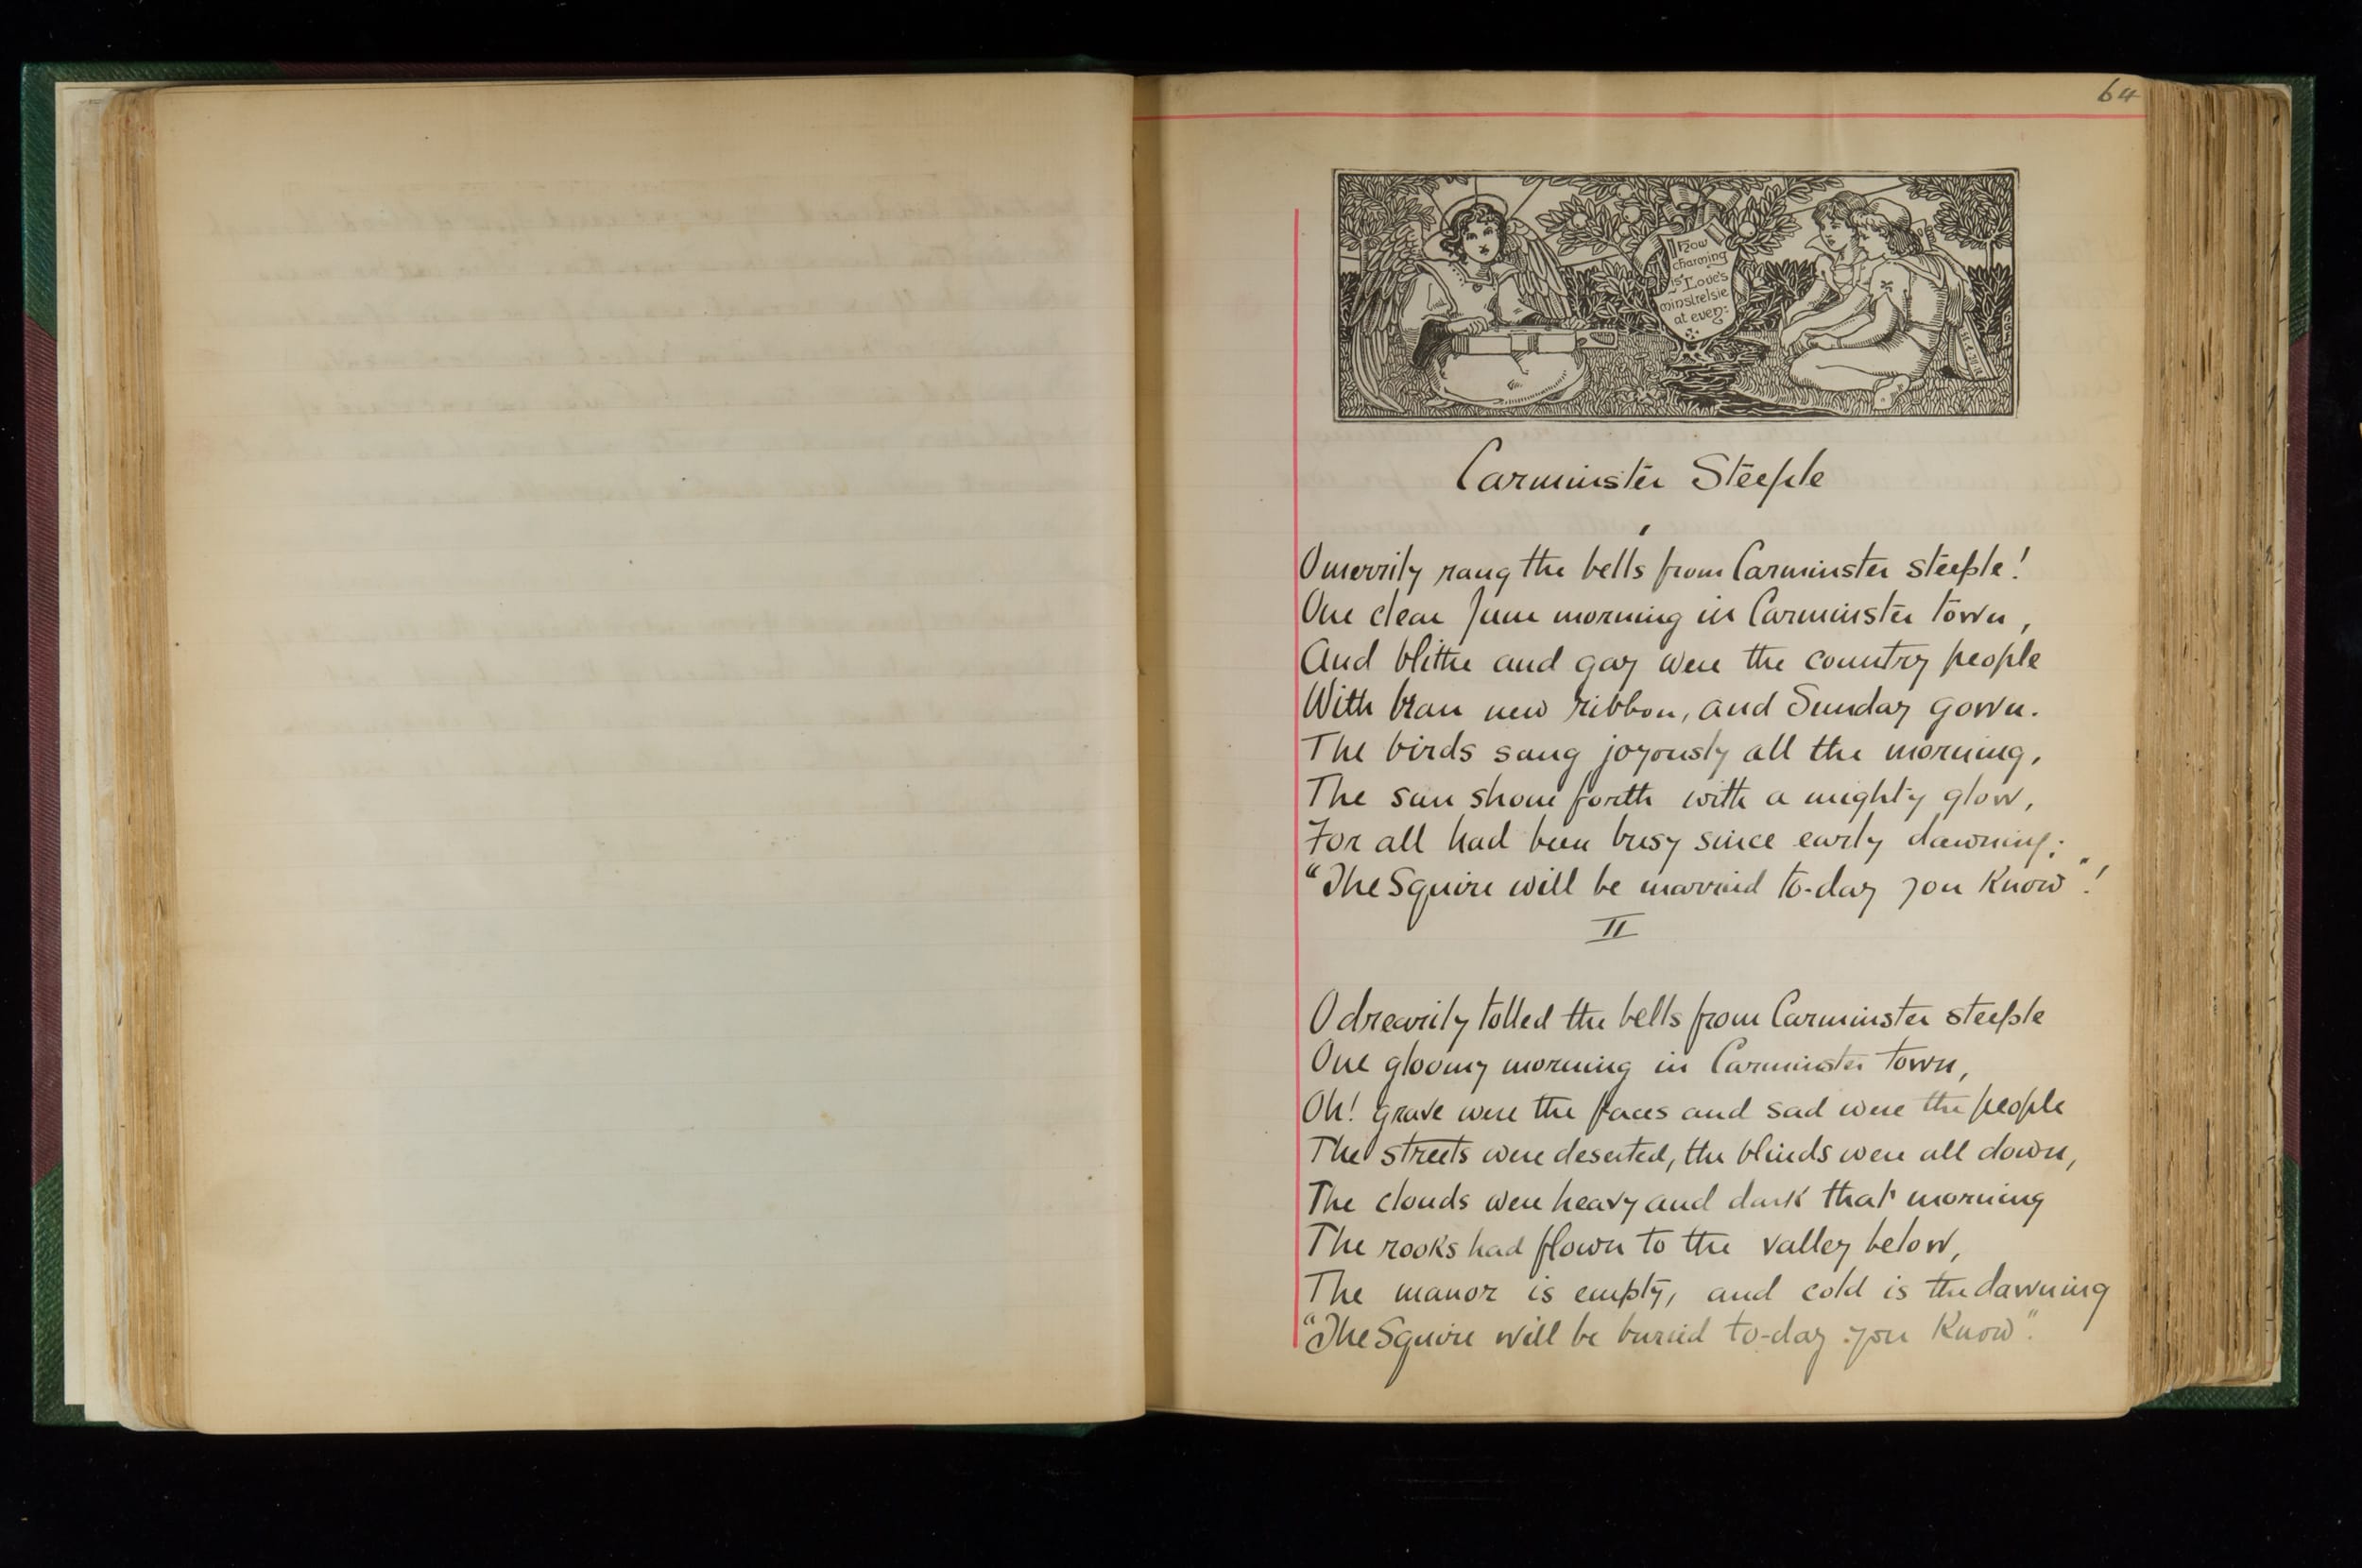 64
How
charming
is Love's
minstrelsie
at even:
Carminster Steeple
I
O merrily rang the bells from Carminster steeple!
One clear June morning in Carminster town,
And blithe and gay were the country people
With bran new ribbon, and Sunday gown.
The birds sang joyously all the morning,
The sun shone forth with a mighty glow,
For all had been busy since early dawning;
"The Squire will be married to-day you know"!
II
O drearily tolled the bells from Carminster steeple
One gloomy morning in Carminster town,
Oh! grave were the faces and sad were the people
The streets were deserted, the blinds were all down,
The clouds were heavy and dark that morning
The rooks had flown to the valley below,
The manor is empty, and cold is the dawning
"The Squire will be buried to-day you know".